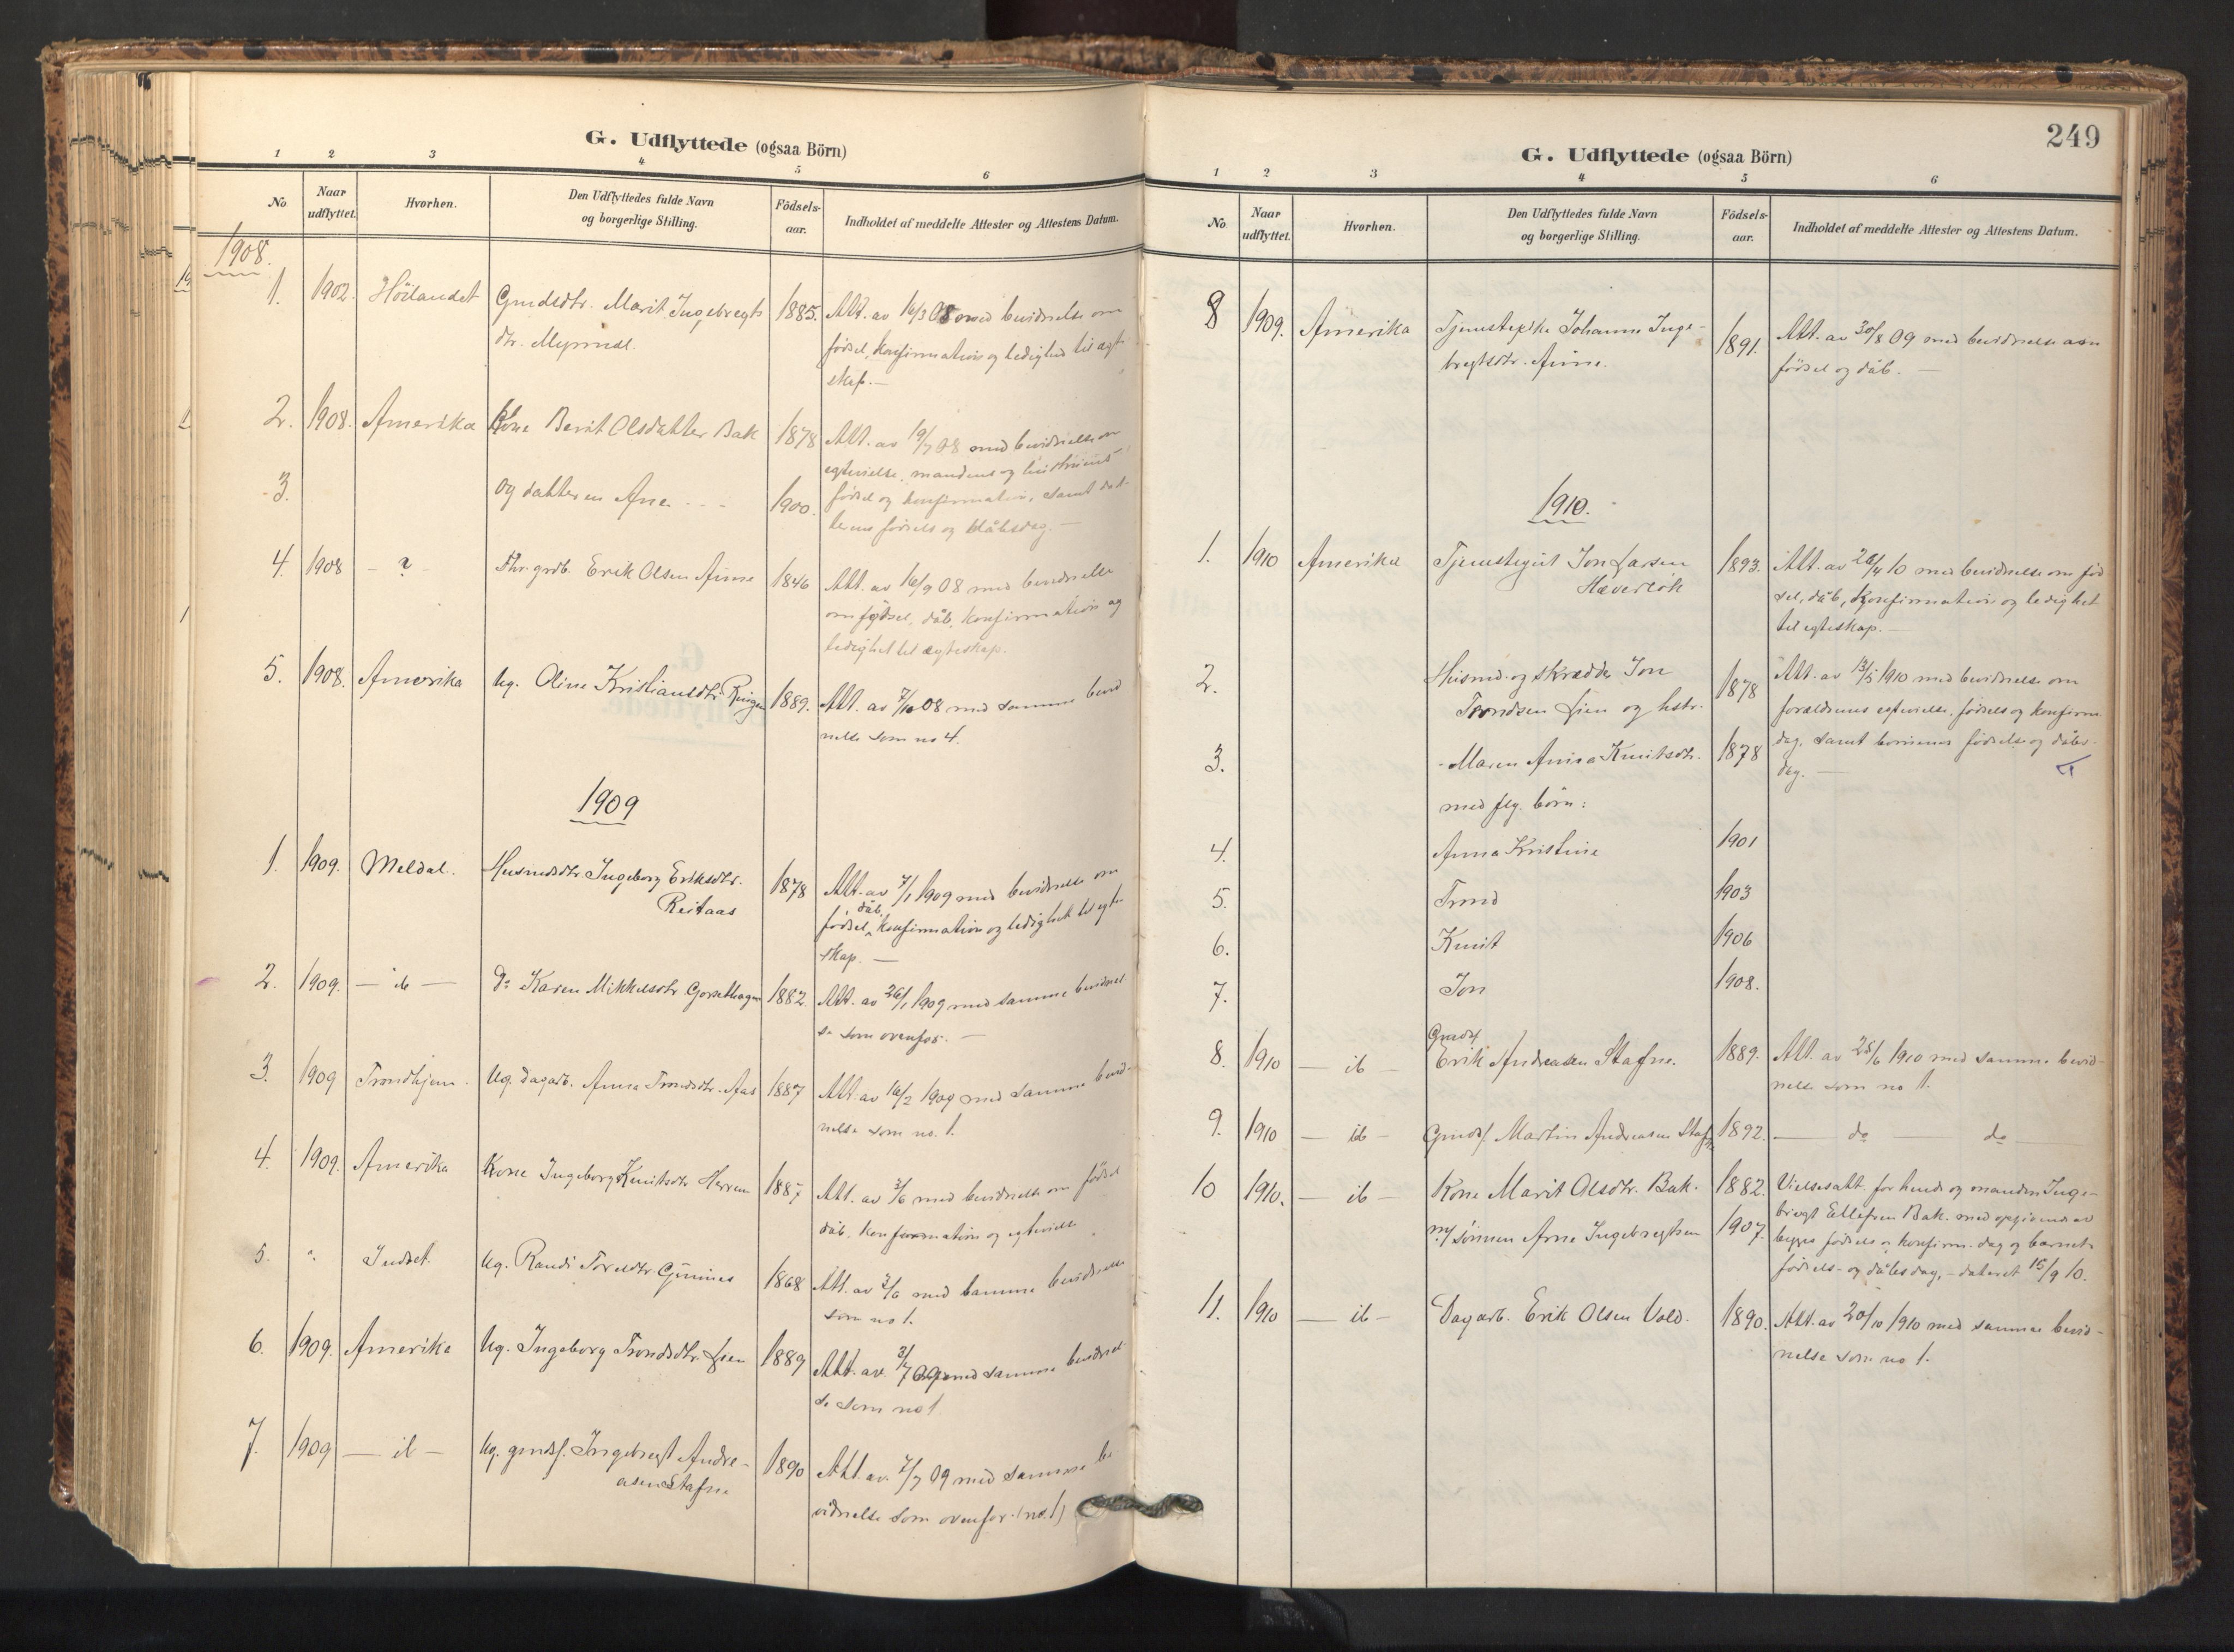 G. Udflyttede (ogsaa Börn)
1 2 3 4 5 6
No
Naar udflyttet.
Hvorhen.
Den Udflyttedes fulde Navn og borgerlige Stilling.
Födsels-aar.
Indholdet af meddelte Attester og Attestens Datum.
1908.
1. 1902. Höilandet Gmdsdtr. Marit Ingebregts 1885. Att. av 16/3 08 med bevidnelse om
dtr. Myrmel. fødsel, konfirmation og ledighed til ægte
skap. —
2. 1908. Amerika Kone Berit Olsdatter Bak 1878 Att. av 19/7 08 med bevidnelse om
egtevielse, mandens og hustruens
3. og datteren Ane 1900. fødsel og konfirmation, samt dat-
terens fødsels og dåbsdag. —
4. 1908 — ? Erik Olsen Aune 1846 Att. av 16/9 08 med bevidnelse
om fødsel, dåb, konfirmation og
ledighet til ægteskap.
5. 1908. Amerika Ug. Oline Kristiansdtr. Ringen 1889. Att. av 7/10 08 med samme bevid
nelse som no 4.
1909
1. 1909. Meldal. Husmdsdtr Ingeborg Eriksdtr. 1878 Att. av 7/1 1909 med bevidnelse om
Reitaas fødsel, dåb, konfirmation og ledighet til egte
skap. —
2. 1909. — ib — do Karen Mikkelsdtr. Gorsethagen 1882. Att. av 26/1 1909 med samme bevidnel
se som ovenfor. —
3. 1909 Trondhjem. Ug. dagarb. Anna Trondsdtr. Aas 1887 Att. av 16/2 1909 med samme bevid-
nelse som no. 1.
4. 1909. Amerika Kone Ingeborg Knutsdtr Herrem 1887 Att. av 3/6 med bevidnelse om fødsel
dåb, konfirmation og egtevielse
5. " Indset. Ug. Randi Toreldtr. Gunnes 1868 Att. av 3/6 med samme bevidnelse
som no 1.
6. 1909. Amerika Ug. Ingeborg Trondsdtr. Lien 1889 Att. av 3/7 09 med samme bevidnel
se som no 1
7. 1909 — ib — Ug. gmds. Ingebregt Andre- 1890 Att. av 7/7 09 med samme be
asen Stafne vidnelse som ovenfor. (no. 1)
249
G. Udflyttede (ogsaa Börn)
1 2 3 4 5 6
No
Naar udflyttet.
Hvorhen.
Den Udflyttedes fulde Navn og borgerlige Stilling.
Födsels-aar.
Indholdet af meddelte Attester og Attestens Datum.
8 1909. Amerika Tjenestepike Johanna Inge- 1891. Att. av 30/8 09 med bevidnelse om
bregtsdtr. Aune. fødsel og dåb. —
1910.
1. 1910 Amerika Tjenestegut Jon Larsen 1893. Att. av 26/4 10 med bevidnelse om fød
Hæverlök sel, dåb, konfirmation og ledighet
til egteskap. —
2. Husmd. og skrædder Jon 1878 Att. av 13/5 1910 med bevidnelse om
Trondsen Lien og hstr. forældrenes egtevielse, fødsels og konfirm.
3. Maren Anna Knutsdtr. 1878 dag, samt børnenes fødsels og dåbs-
dag. —
med flg. börn:
4. Anna Kristine 1901
5. Trond 1903
6. Knut 1906
7. Jon 1908.
8. 1910 — ib — Gmds. Erik Andreasen Stafne. 1889. Att. av 25/6 1910 med samme bevid-
nelse som no 1.
9. 1910 — ib — Gmds. Martin Andreasen Stafne 1892. — do — do —
10 1910. — ib — Kone Marit Olsdtr. Bak. 1882. Vielsesatt. for hende og manden Inge-
brigt Ellefsen Bak. med opgivende av
m/ sönnen Arne Ingebregtsen 1907. begges fødsels og konfirm.-dag og barnets
fødsels- og dåbsdag, — dateret 15/9 10.
11. 1910 — ib — Dagarb. Erik Olsen Vold. 1890. Att. av 20/10 1910 med samme bevid-
nelse som no 1.